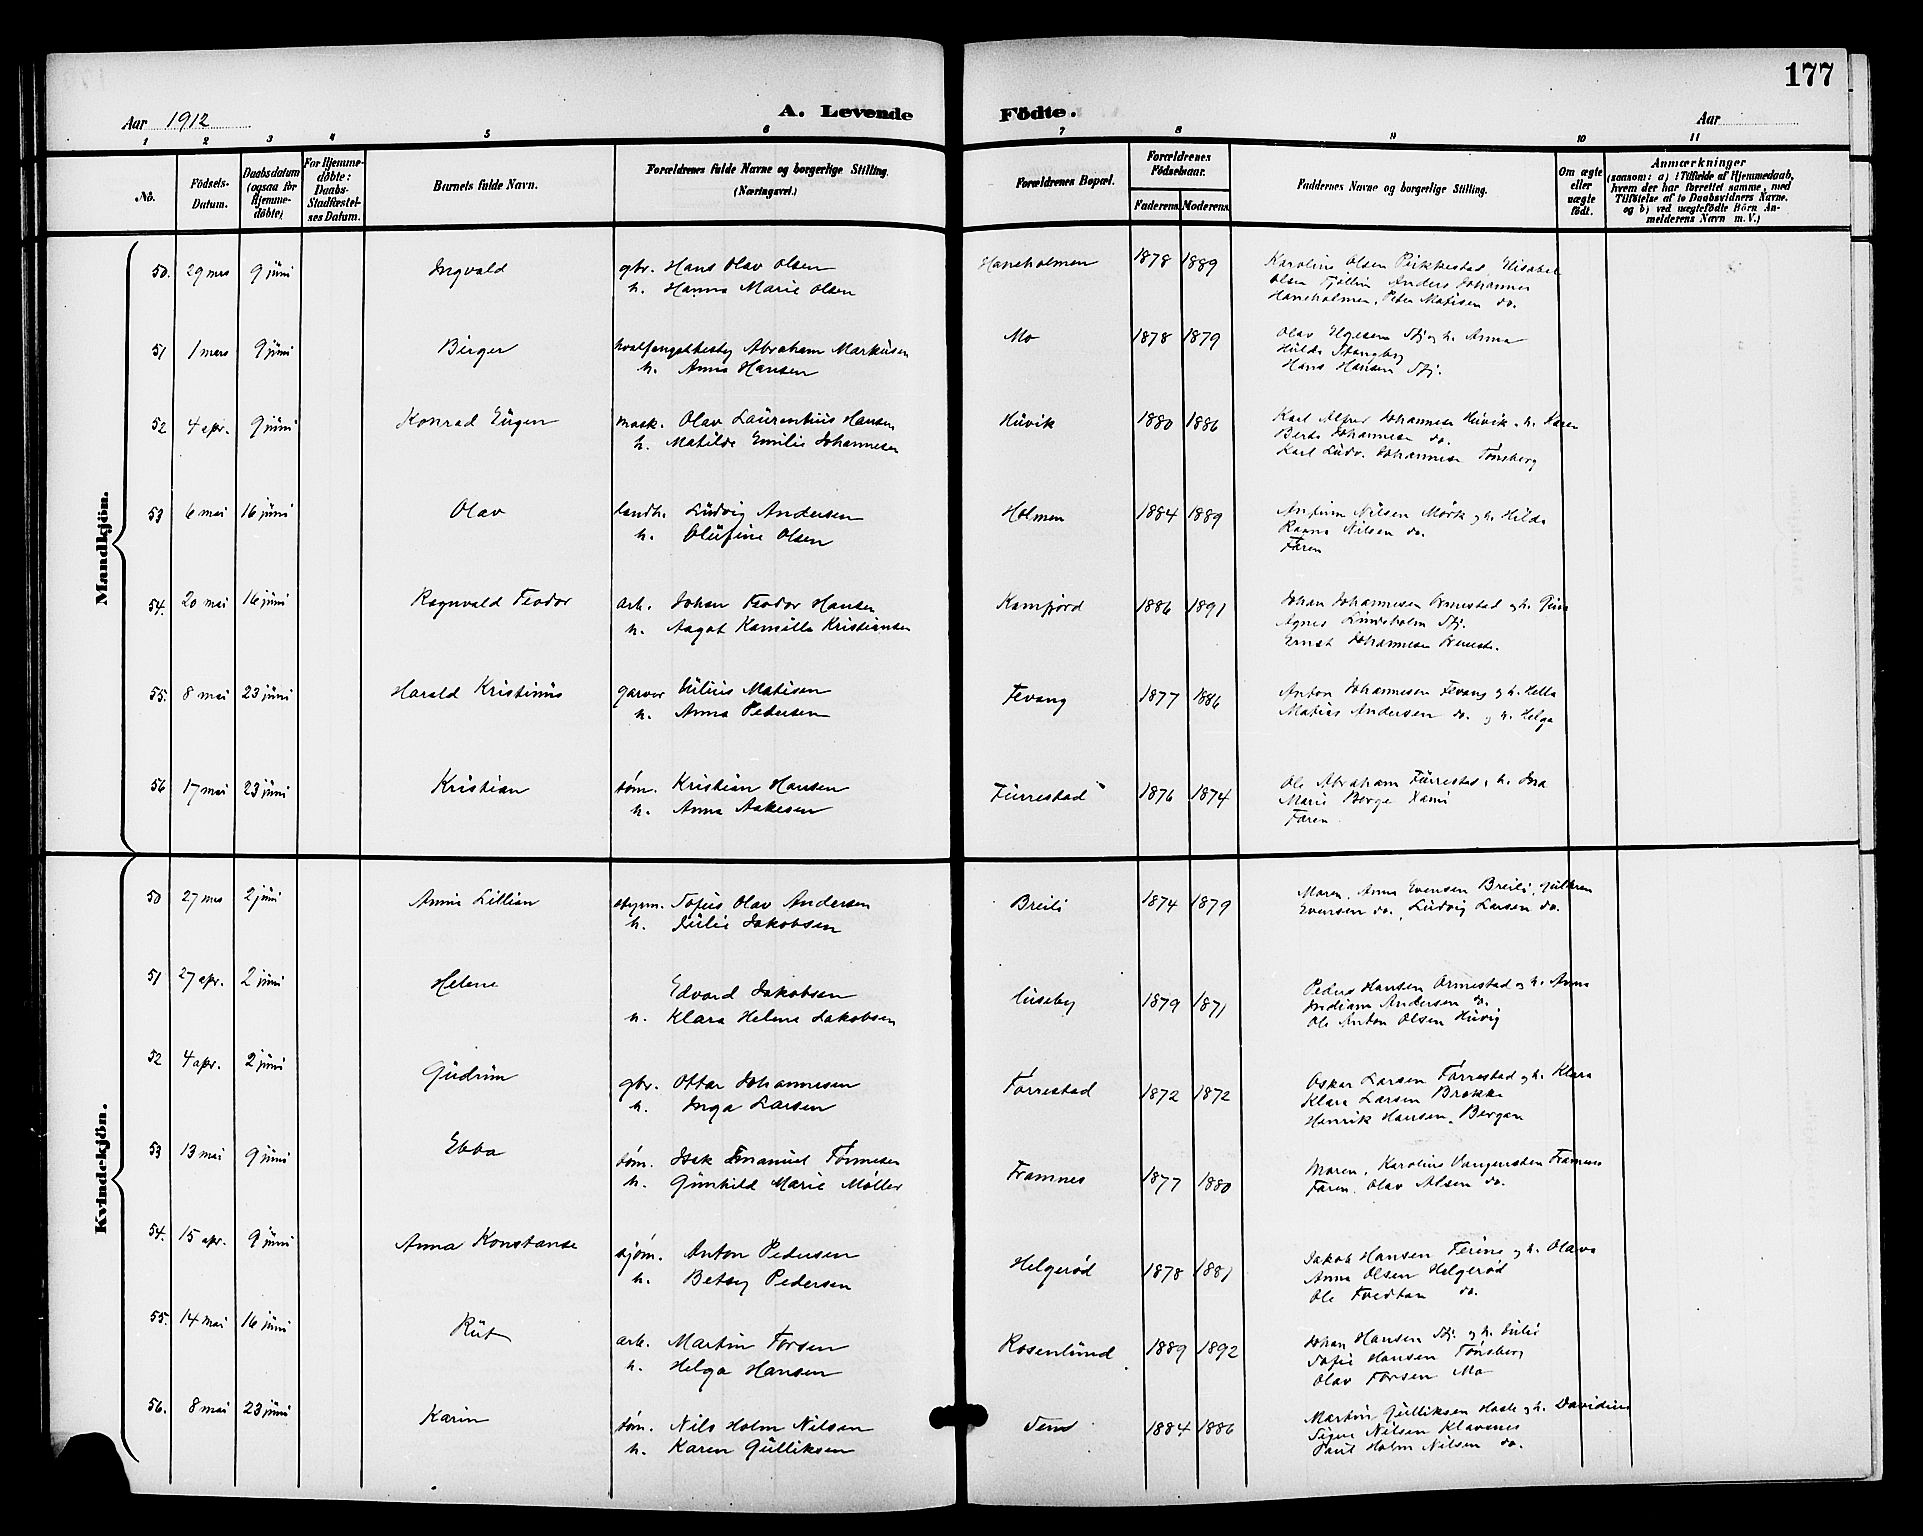 177
Aar 1912
A. Levende Födte.
Aar
1 2 3 4 5 6 7 8 9 10 11
No.
Födsels-Datum.
Daabsdatum (ogsaa for Hjemmedöbte)
For Hjemmedöbte: Daabs-Stadfæstelses Datum.
Barnets fulde Navn.
Forældrenes fulde Navne og borgerlige Stilling. (Næringsvei.)
Forældrenes Bopæl.
Forældrenes Födselsaar.
Faderens Moderens
Faddernes Navne og borgerlige Stilling.
Om ægte eller uægte födt.
Anmærkninger
(saasom: a) i Tilfælde af Hjemmedaab, hvem der har forrettet samme, med Tilföielse af to Daabsvidners Navne, og b) ved uægtefödte Börn Anmelderens Navn m. V.)
Mandkjön.
50. 29 mrs 9 juni Ingvald gbr. Hans Olav Olsen Haneholmen 1878 1889 Karoline Olsen Pirkkestad, Elisabet
h. Hanna Marie Olsen Olsen Fjellin Anders Johannes
Haneholmen, Peter Matisen do.
51 1 mars 9 juni Birger hvalfangstbesty Abraham Markusen Mo 1878 1879 Olav Elgesen Stj og h. Anna
h. Anna Hansen Hilda Stangeby
Hans Hansen Stj.
52 4 apr. 9 juni Konrad Eugen mask. Olav Laurentius Hansen Huvik 1880 1886 Karl Alfred Johannesen Huvik, h. Karen
h. Matilde Emilie Johannesen Berta Johannesen do.
Karl Ludv. Johannesen Tønsberg
53 6 mai 16 juni Olav landh. Ludvig Andersen Holmen 1884 1889 Anfinn Nilsen Mørk og h. Hilda
h. Olufine Olsen Ragna Nilsen do.
Faren
54. 20 mai 16 juni Ragnvald Teodor arb. Johan Teodor Hansen Kamfjord 1886 1891 Johan Johannesen Ormestad og h. Gina
h. Aagot Kamilla Kristiansen Agnes Lindsholm Stj.
Ernst Johannesen Ormest.
55. 8 mai 23 juni Harald Kristinius garver Julius Matisen Fevang 1877 1886 Anton Johannesen Fevang og h. Hella
h. Anna Pedersen Matias Andersen do. og h. Helga
56 17 mai 23 juni Kristian tøm. Kristian Hansen Furrestad 1876 1874 Ole Abraham Furrestad, h. Ina
h. Anna Aakesen Marie Berge
Faren
Kvindekjön.
50 27 mrs 2 juni Anna Lillian styrm. Tofius Olav Andersen Breili 1874 1879 Moren, Anna Evensen Breili,
h. Julie Jakobsen Evensen do., Ludvig Larsen do.
51 27 apr. 2 juni Helene Edvard Jakobsen Huseby 1879 1871 Peder Hansen Ormestad og h. Anna
h. Klara Helene Jakobsen Indiana Andersen do.
Ole Anton Olsen Huvig
52 4 apr. 2 juni Gudrun gbr. Ottar Johannesen Torrestad 1872 1872 Oskar Larsen Torrestad og h. Klara
h. Inga Larsen Klara Larsen Brekke
Henrik Hansen, Bergan
53 13 mai 9 juni Ebba tøm. Isak Emanuel Tønnesen Framnes 1877 1880 Moren, Karoline Vangensten Framnes
h. Gunhild Marie Møller Faren, Olav Olsen do.
54. 15 apr. 9 juni Anna Konstanse sjøm. Anton Pedersen Helgerød 1878 1881 Jakob Hansen Ferine og h. Olava
h. Betsy Pedersen Anna Olsen Helgerød
Ole Tvedtan do.
55. 14 mai 16 juni Rut arb. Martin Torsen Rosenlund 1889 1892 Johan Hansen Stj. og h. Julie
h. Helga Hansen Sofie Hansen Tønsberg
Olav Torsen Mo
56. 8 mai 23 juni Karin tøm. Nils Holm Nilsen Tem 1884 1886 Martin Gulliksen Hasle og h. Davidine
h. Karen Gulliksen Signe Nilsen Klavenes
Paul Holm Nilsen do.